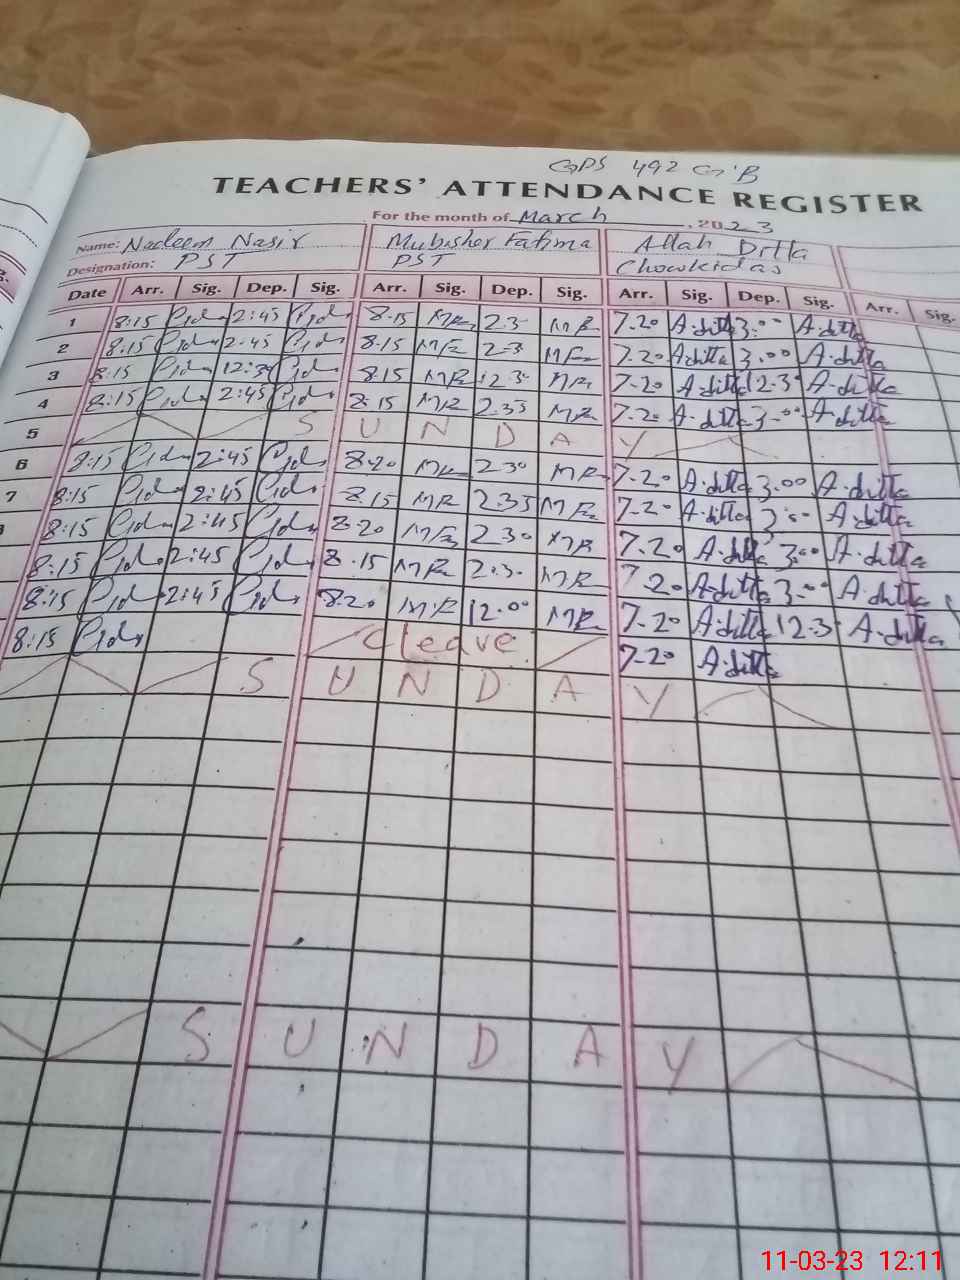 GPS 492 G'B
TEACHERS' ATTENDANCE REGISTER
For the month of March, 2023
Name: Nadeem Nasir Mubisher Fatima Allah Ditta
Designation: PST PST Chowkidar
Date Arr. Sig. Dep. Sig. Arr. Sig. Dep. Sig. Arr. Sig. Dep. Sig. Arr. Sig.
1 8:15 2:45 8.15 2.3 7.20 A.ditta 3.00 A.ditta
2 8:15 2:45 8.15 2.3 7.20 A.ditta 3.00 A.ditta
3 8:15 12:30 8.15 12.3 7.20 A.ditta 12.3 A.ditta
4 8:15 2:45 8.15 2.35 7.20 A.ditta 3.00 A.ditta
5 S U N D A Y
6 8:15 2:45 8.20 2.30 7.20 A.ditta 3.00 A.ditta
7 8:15 2:45 8.15 2.35 7.20 A.ditta 3.00 A.ditta
8:15 2:45 8.20 2.30 7.20 A.ditta 3.00 A.ditta
8:15 2:45 8.15 2.3. 7.20 A.ditta 3.00 A.ditta
8:15 2:45 8.20 12.00 7.20 A.ditta 12.3 A.ditta
8:15 Cleave 7.20 A.ditta
S U N D A Y
S U N D A Y
11-03-23 12:11